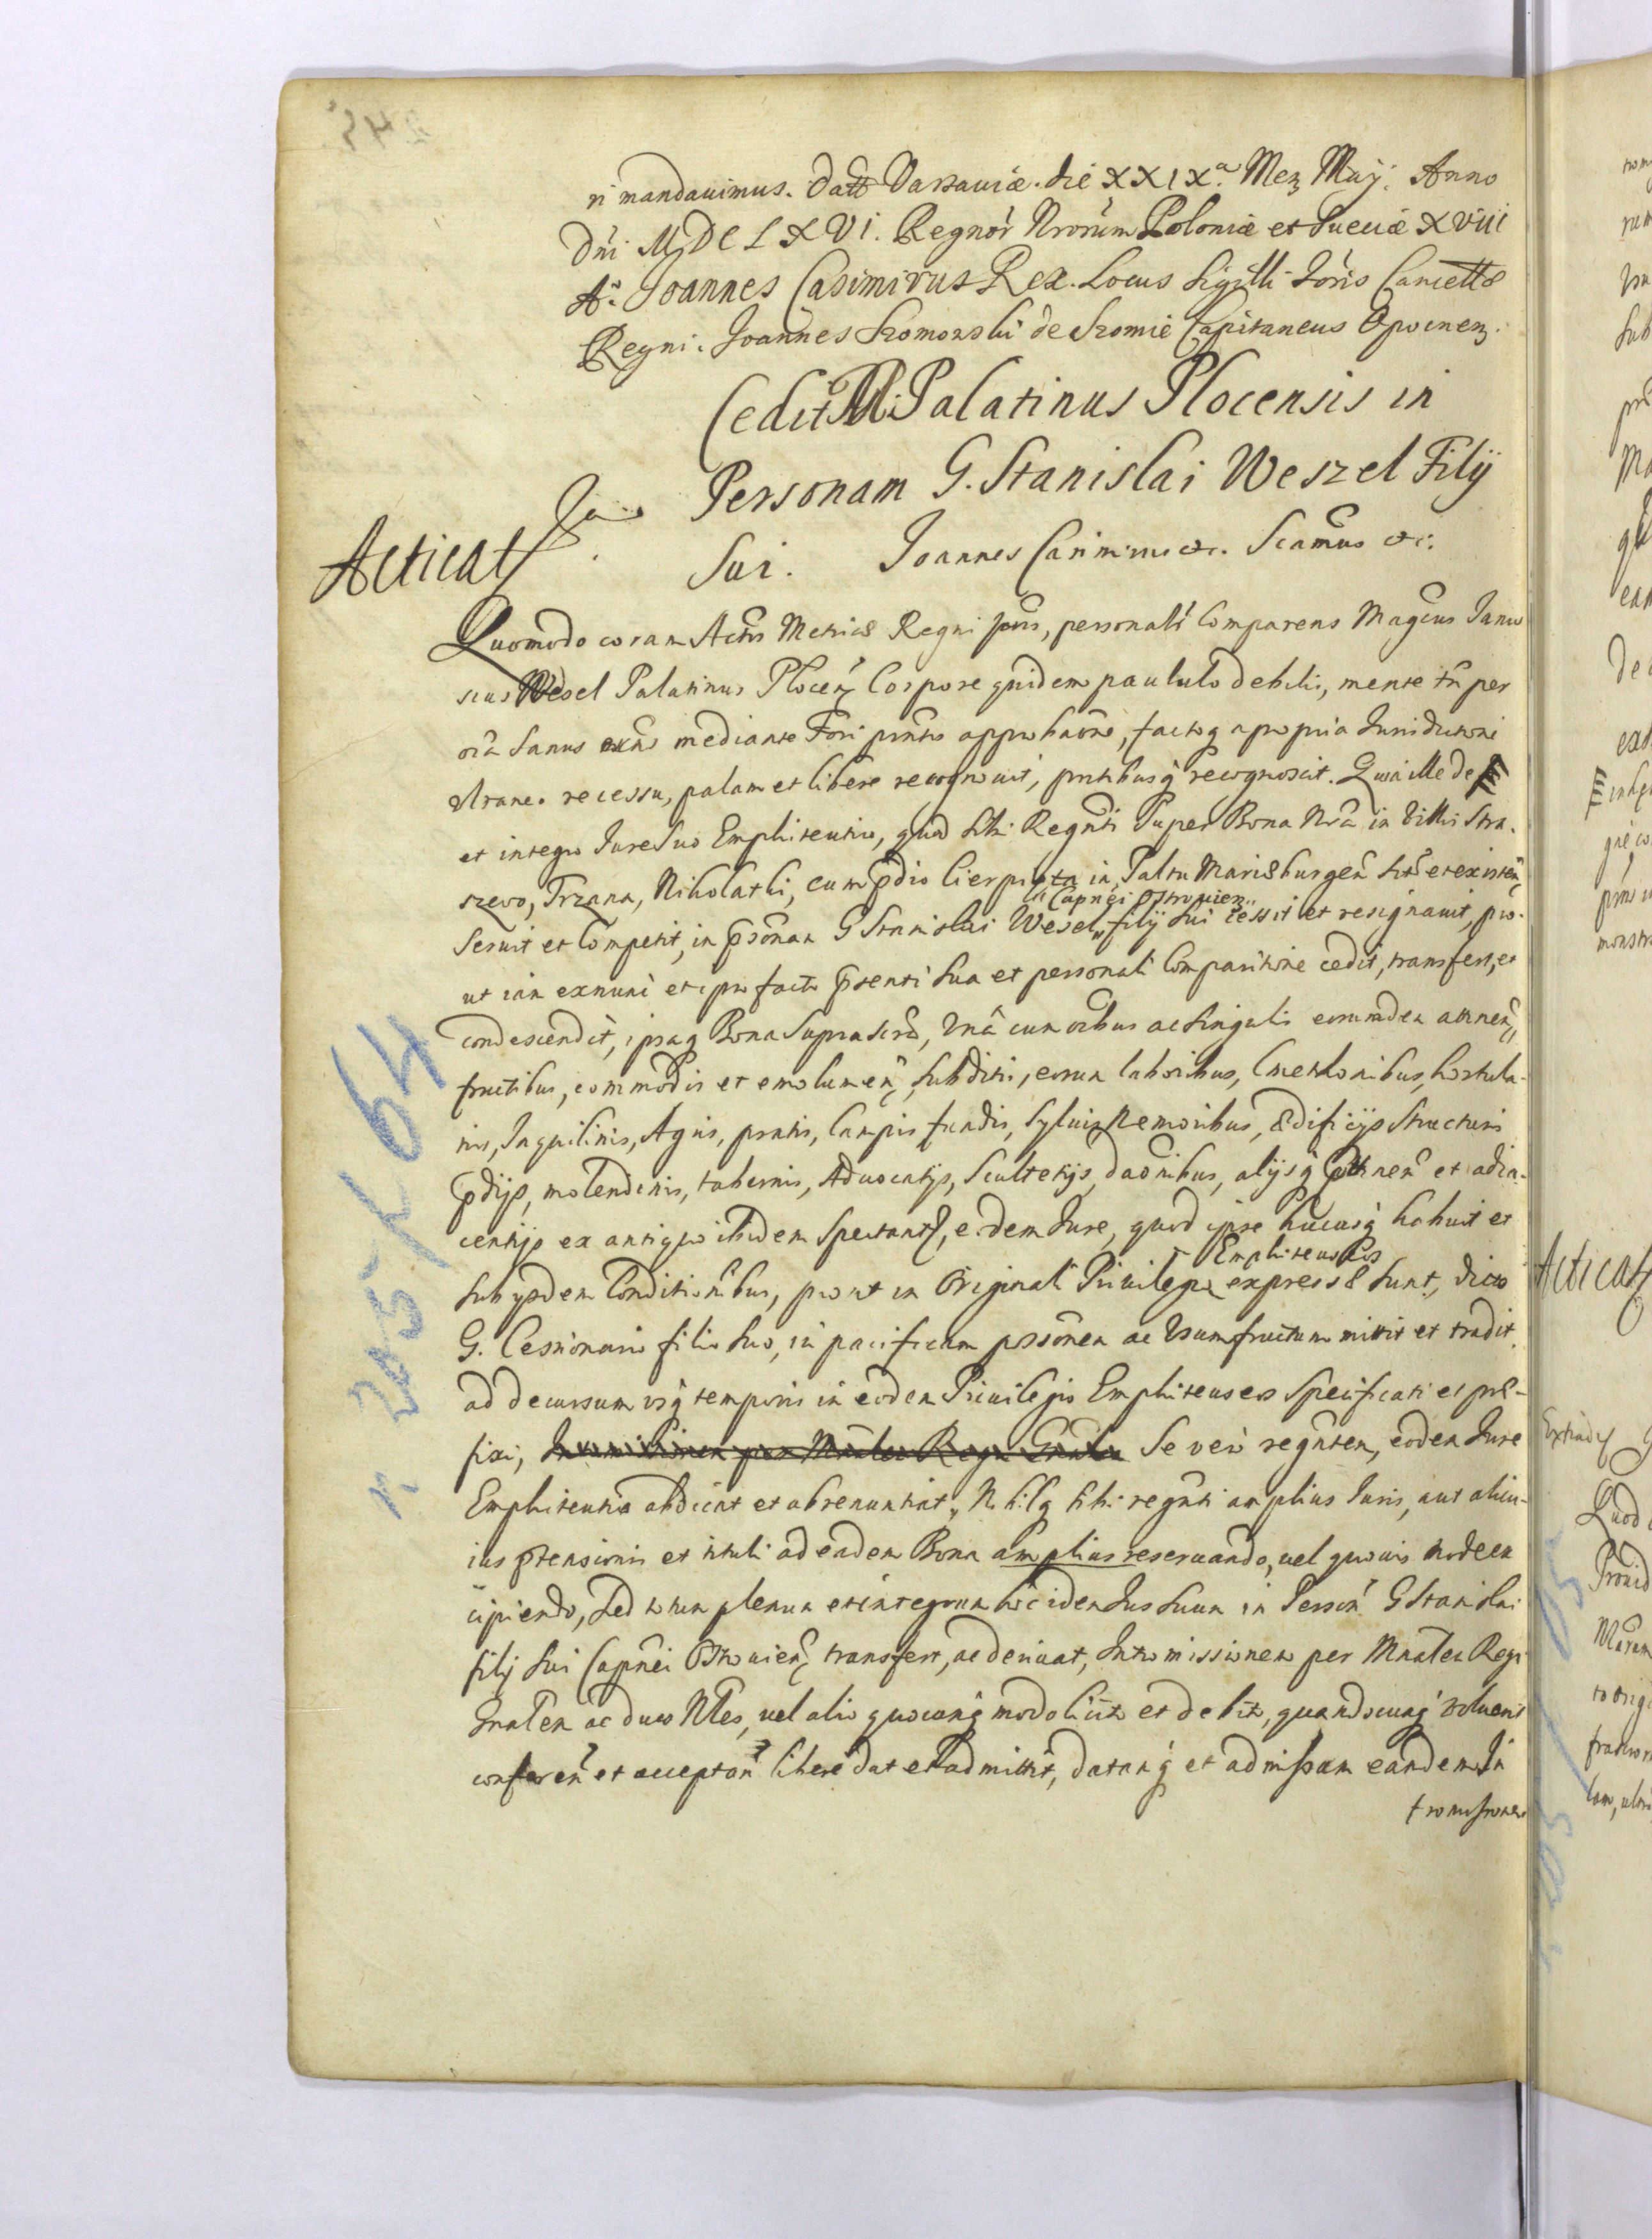 ri mandauimus. Datt Varsauiæ. die XXIXa. Menz Maij. Anno
Dni MDCLXVI. Regnor Nrorum Poloniæ et Sueciæ XVIII
Ao. Joannes Casimirus Rex. Locus Sigilli Ioris Cancell
Regni. Joannes Skomorski de Skomie Capitaneus Opocnen.
Cedit M. Palatinus Plocensis in
Personam G. Stanislai Weszel Filij
Sui. Joannes Casimirus etc. Scimus etc.
Acticat
Quomodo coram Actis Metrices Regni pns, personalr Comparens Magcus Janu
scius Wesel Palatinus Plocen Corpore quidem paululo debilis, mente tn per
oia Sanus exns mediante Fori pntis approbaone, factoq a propria Iurisdictione
recessu, palam et libere recognouit, pntibusq recognoscit. Quia ille de
et integro Iure Suo Emphiteutico, quod sibi Regnti Super Bona Nra in Villis Stra-
szewo, Trzana, Nikolatki, cum pdio Cierpieta in Paltu Mariæburgen Sitis et existen
" Capnei Ostrouien "
Seruit et Competit, in psonam G Stanislai Wesel " filij sui cessit et resignauit, pro-
ut iam exnunc et ipso facto psenti sua et personali Comparitione cedit, transfert, et
condescendit, ipsaq Bona Suprascra, Vna cum oibus ac singulis eorumdem attinen,
fructibus, commodis et emolumen, Subditis, eorum laboribus, Cmethonibus, hortula-
nis, Inquilinis, Agris, pratis, Campis fundis, Syluis Nemoribus, Ædificijs Structuris
pdijs, molendinis, tabernis, Aduocatijs, Scultetijs, daonibus, alijsq pttinen et adia-
centijs ex antiquo ibidem Spectant, eodem Iure, quod ipse hucusq habuit et
Emphiteuseos
sub ijsdem Conditionibus, prout in Originali Priuilegio expressæ sunt, dicto
G. Cessionario filio suo, in pacificam possonem ac Vsumfructum mittit et tradit.
ad decursum vsq temporis in eodem Priuilegio Emphiteuseos Specificati et præ-
fixi, Se vero regntem, eodem Iure
Emphiteutico abdicat et abrenuntiat, Nihilq sibi regnti amplius Iuris, aut alicu-
ius ptensionis et tituli ad eadem Bona amplius reseruando, uel quouis modo ex
cipiendo, Sed totum plenum et integrum hoc idem Ius Suum in Person G Stanislai
filij Sui Capnei Ostrouien transfert, ac deriuat, Intromissionem per Mnalem Regni
Gnalem ac duos Nles, uel alio quocunq modo licito et debito, quandocunq voluerit
conferen et acceptan libere dat et admittit, datamq et admissam eandem In
tromissionem